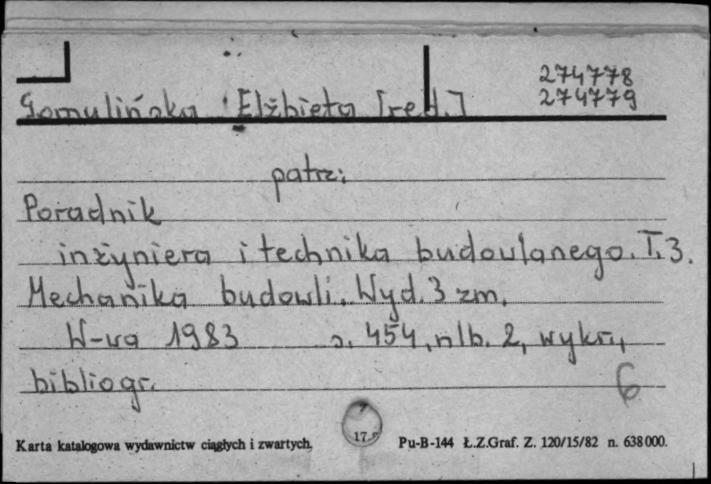 274778
Gomulińska Elżbieta [red.] 274779
patrz:
Poradnik
inżyniera i technika budowlanego. T. 3.
Mechanika budowli. Wyd. 3 zm.
W-wa 1983 s. 454, nlb. 2, wykr.,
bibliogr.
6
Karta katalogowa wydawnictw ciągłych i zwartych. Pu-B-144 Ł.Z.Graf. Z. 120/15/82 n. 638000.